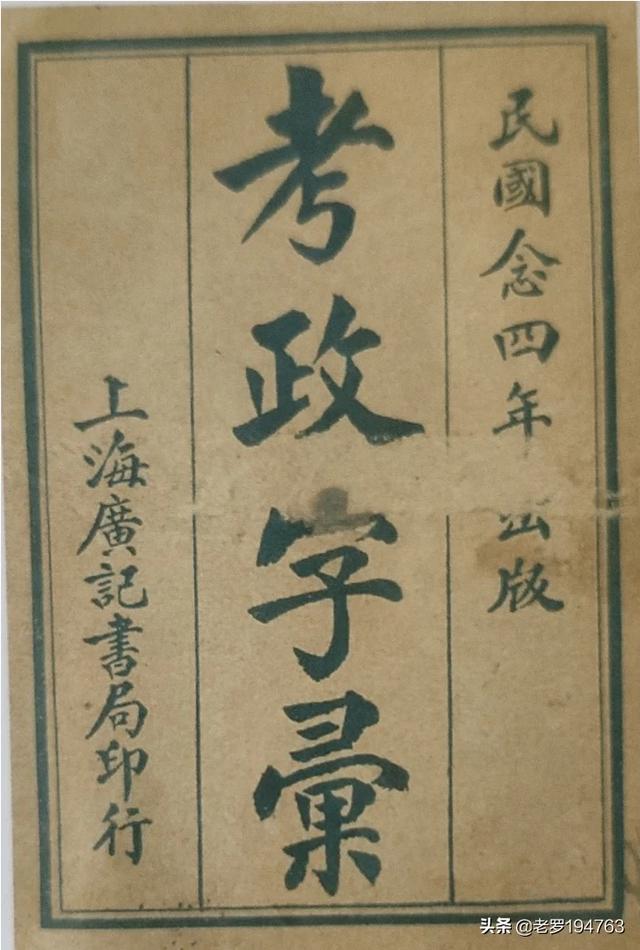 民國念四年出版
考政字彙
上海廣記書局印行
头条 @老罗194763